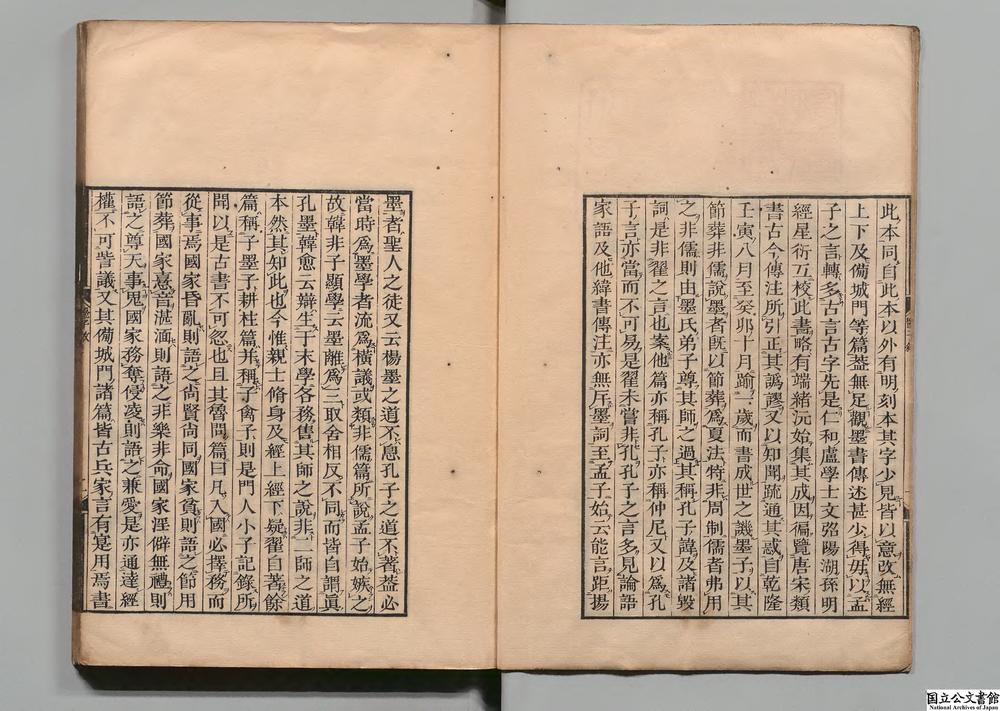 此本同自此本以外有明刻本其字少見皆以意改無經
上下及備城門等篇葢無足觀墨書傳述甚少得毋以孟
子之言轉多古言古字先是仁和盧學士文弨陽湖孫明
經星衍互校此書略有端緒沅始集其成因徧覽唐宋類
書古今傳注所引正其譌謬又以知聞疏通其惑自乾隆
壬寅八月至癸卯十月踰一歲而書成世之譏墨子以其
節葬非儒說墨者旣以節葬爲夏法特非周制儒者弗用
之非儒則由墨氏弟子尊其師之過其稱孔子諱及諸毀
詞是非翟之言也案他篇亦稱孔子亦稱仲尼又以爲孔
子言亦當而不可易是翟未嘗非孔孔子之言多見論語
家語及他緯書傳注亦無斥墨詞至孟子始云能言距楊
墨者聖人之徒又云楊墨之道不息孔子之道不著葢必
當時爲墨學者流爲橫議或類非儒篇所說孟子始嫉之
故韓非子顯學云墨離爲三取舍相反不同而皆自謂眞
孔墨韓愈云辯生于末學各務售其師之說非二師之道
本然其知此也今惟親士脩身及經上經下疑翟自著餘
篇稱子墨子耕柱篇并稱子禽子則是門人小子記錄所
聞以是古書不可忽也且其魯問篇曰凡入國必擇務而
從事焉國家昏亂則語之尚賢尚同國家貧則語之節用
節葬國家憙音湛湎則語之非樂非命國家淫僻無禮則
語之尊天事鬼國家務奪侵凌則語之兼愛是亦通達經
權不可訾議又其備城門諸篇皆古兵家言有寔用焉書
国立公文書館
National Archives of Japan